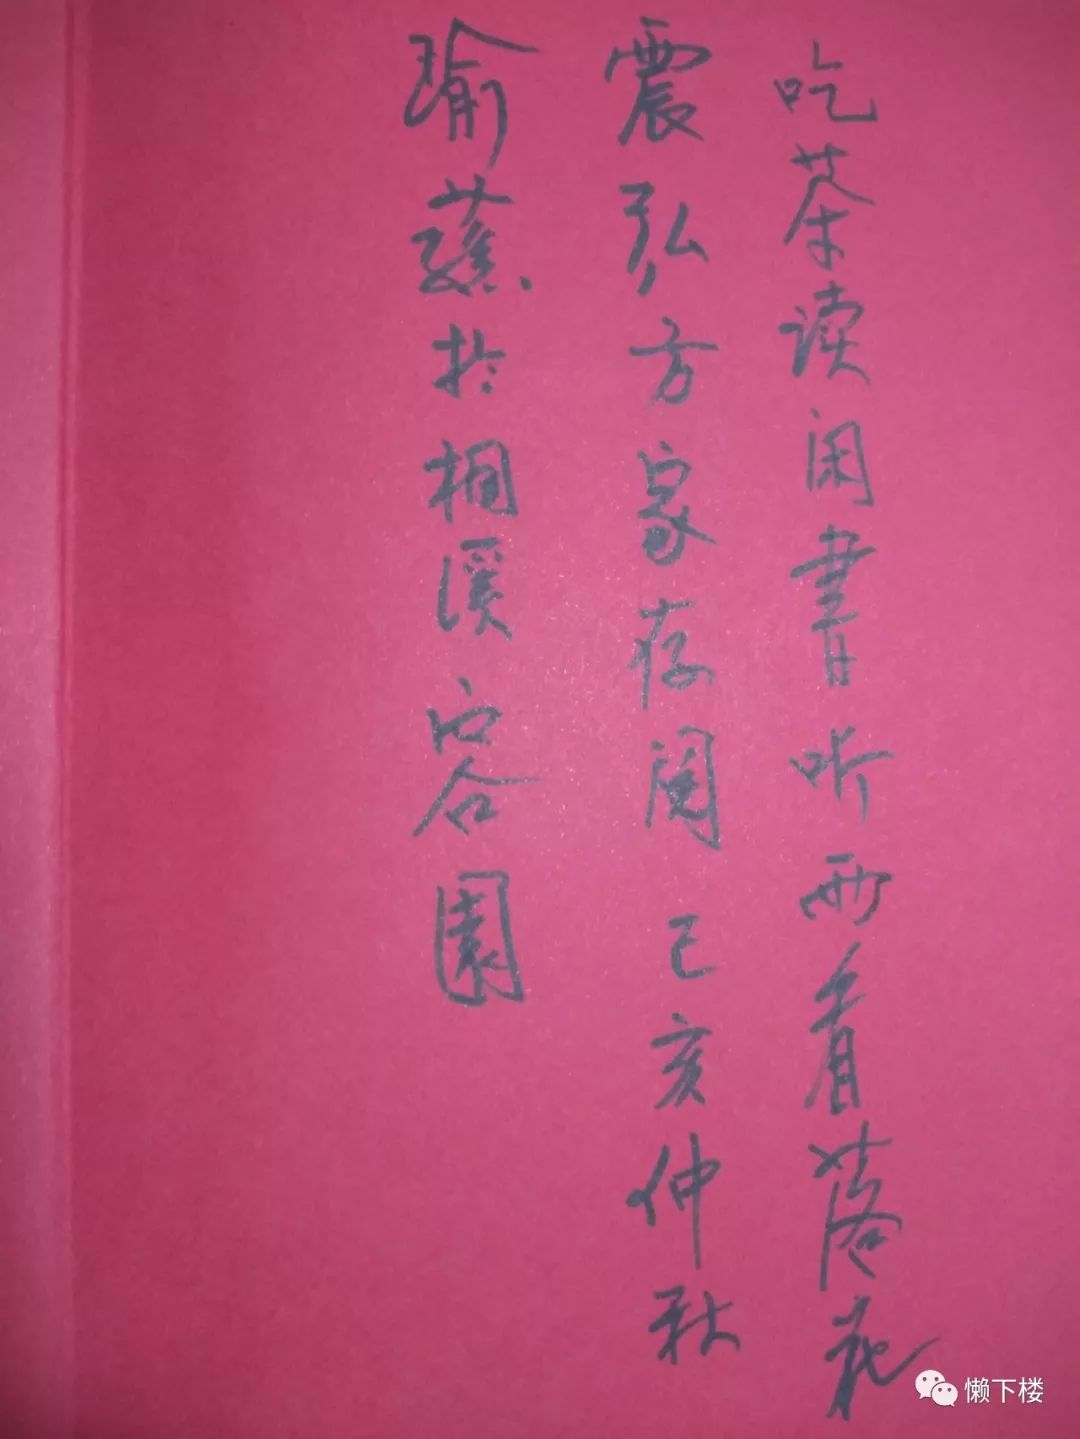 吃茶读闲書听雨看落花
震弘方家存阅 己亥仲秋
瑜蓀於桐溪容園
懒下楼